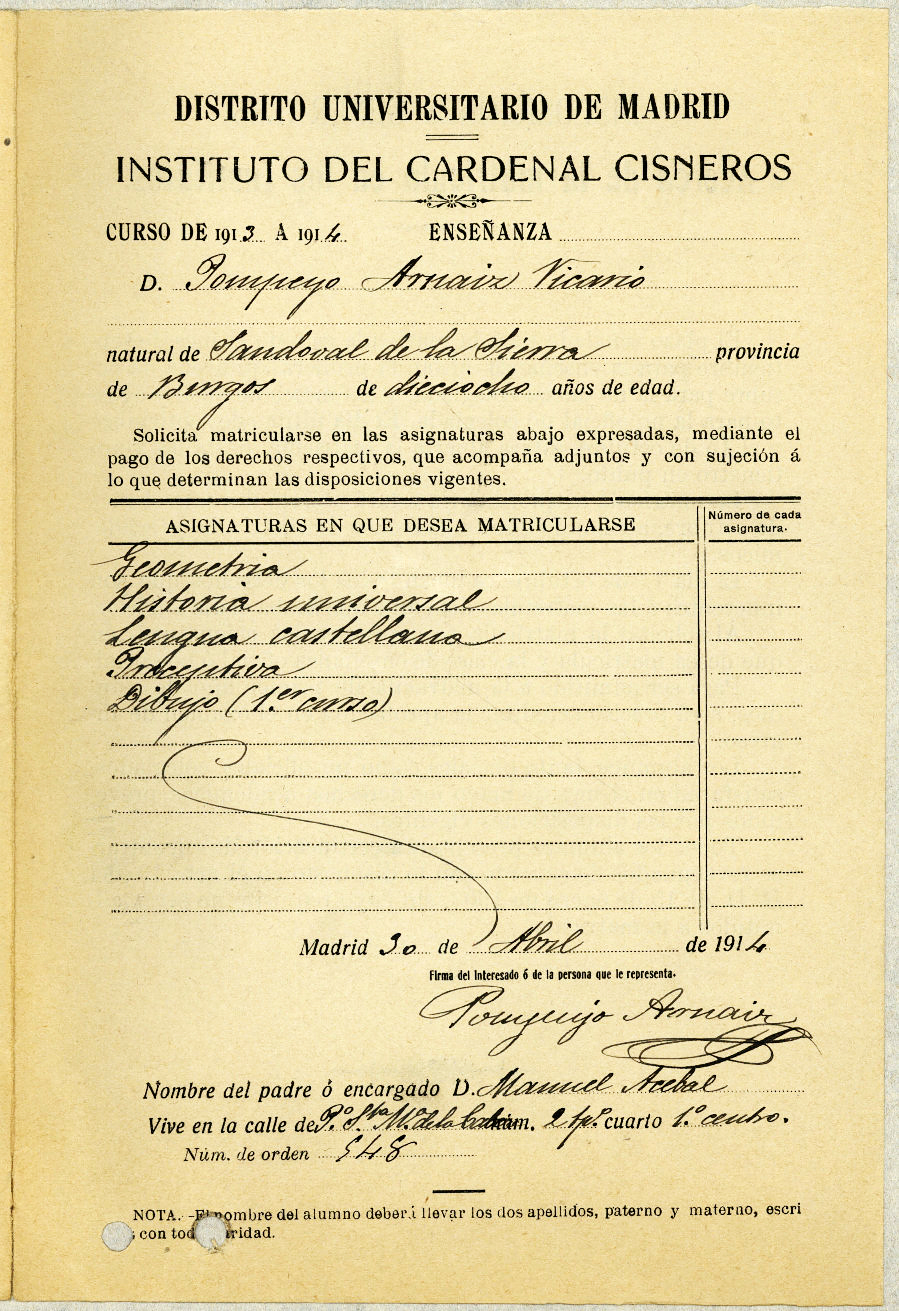 DISTRITO UNIVERSITARIO DE MADRID
INSTITUTO DEL CARDENAL CISNEROS
CURSO DE 1913 A 1914 ENSEÑANZA
D. Pompeyo Arnaiz Vicario
natural de Sandoval de la Sierra provincia
de Burgos de dieciocho años de edad.
Solicita matricularse en las asignaturas abajo expresadas, mediante el
pago de los derechos respectivos, que acompaña adjuntos y con sujeción á
lo que determinan las disposiciones vigentes.
ASIGNATURAS EN QUE DESEA MATRICULARSE
Número de cada
asignatura.
Geometria
Historia universal
Lengua castellana
Preceptiva
Dibujo (1.er curso)
Madrid 30 de Abril de 1914
Firma del interesado ó de la persona que le representa.
Pompeyo Arnaiz
Nombre del padre ó encargado D. Manuel Acebal
Vive en la calle de P.º S.ta M.ª de la núm. 2 tp.º cuarto 1.º centro.
Núm. de orden 548
NOTA.-El nombre del alumno deberá llevar los dos apellidos, paterno y materno, escri
s con tod ridad.